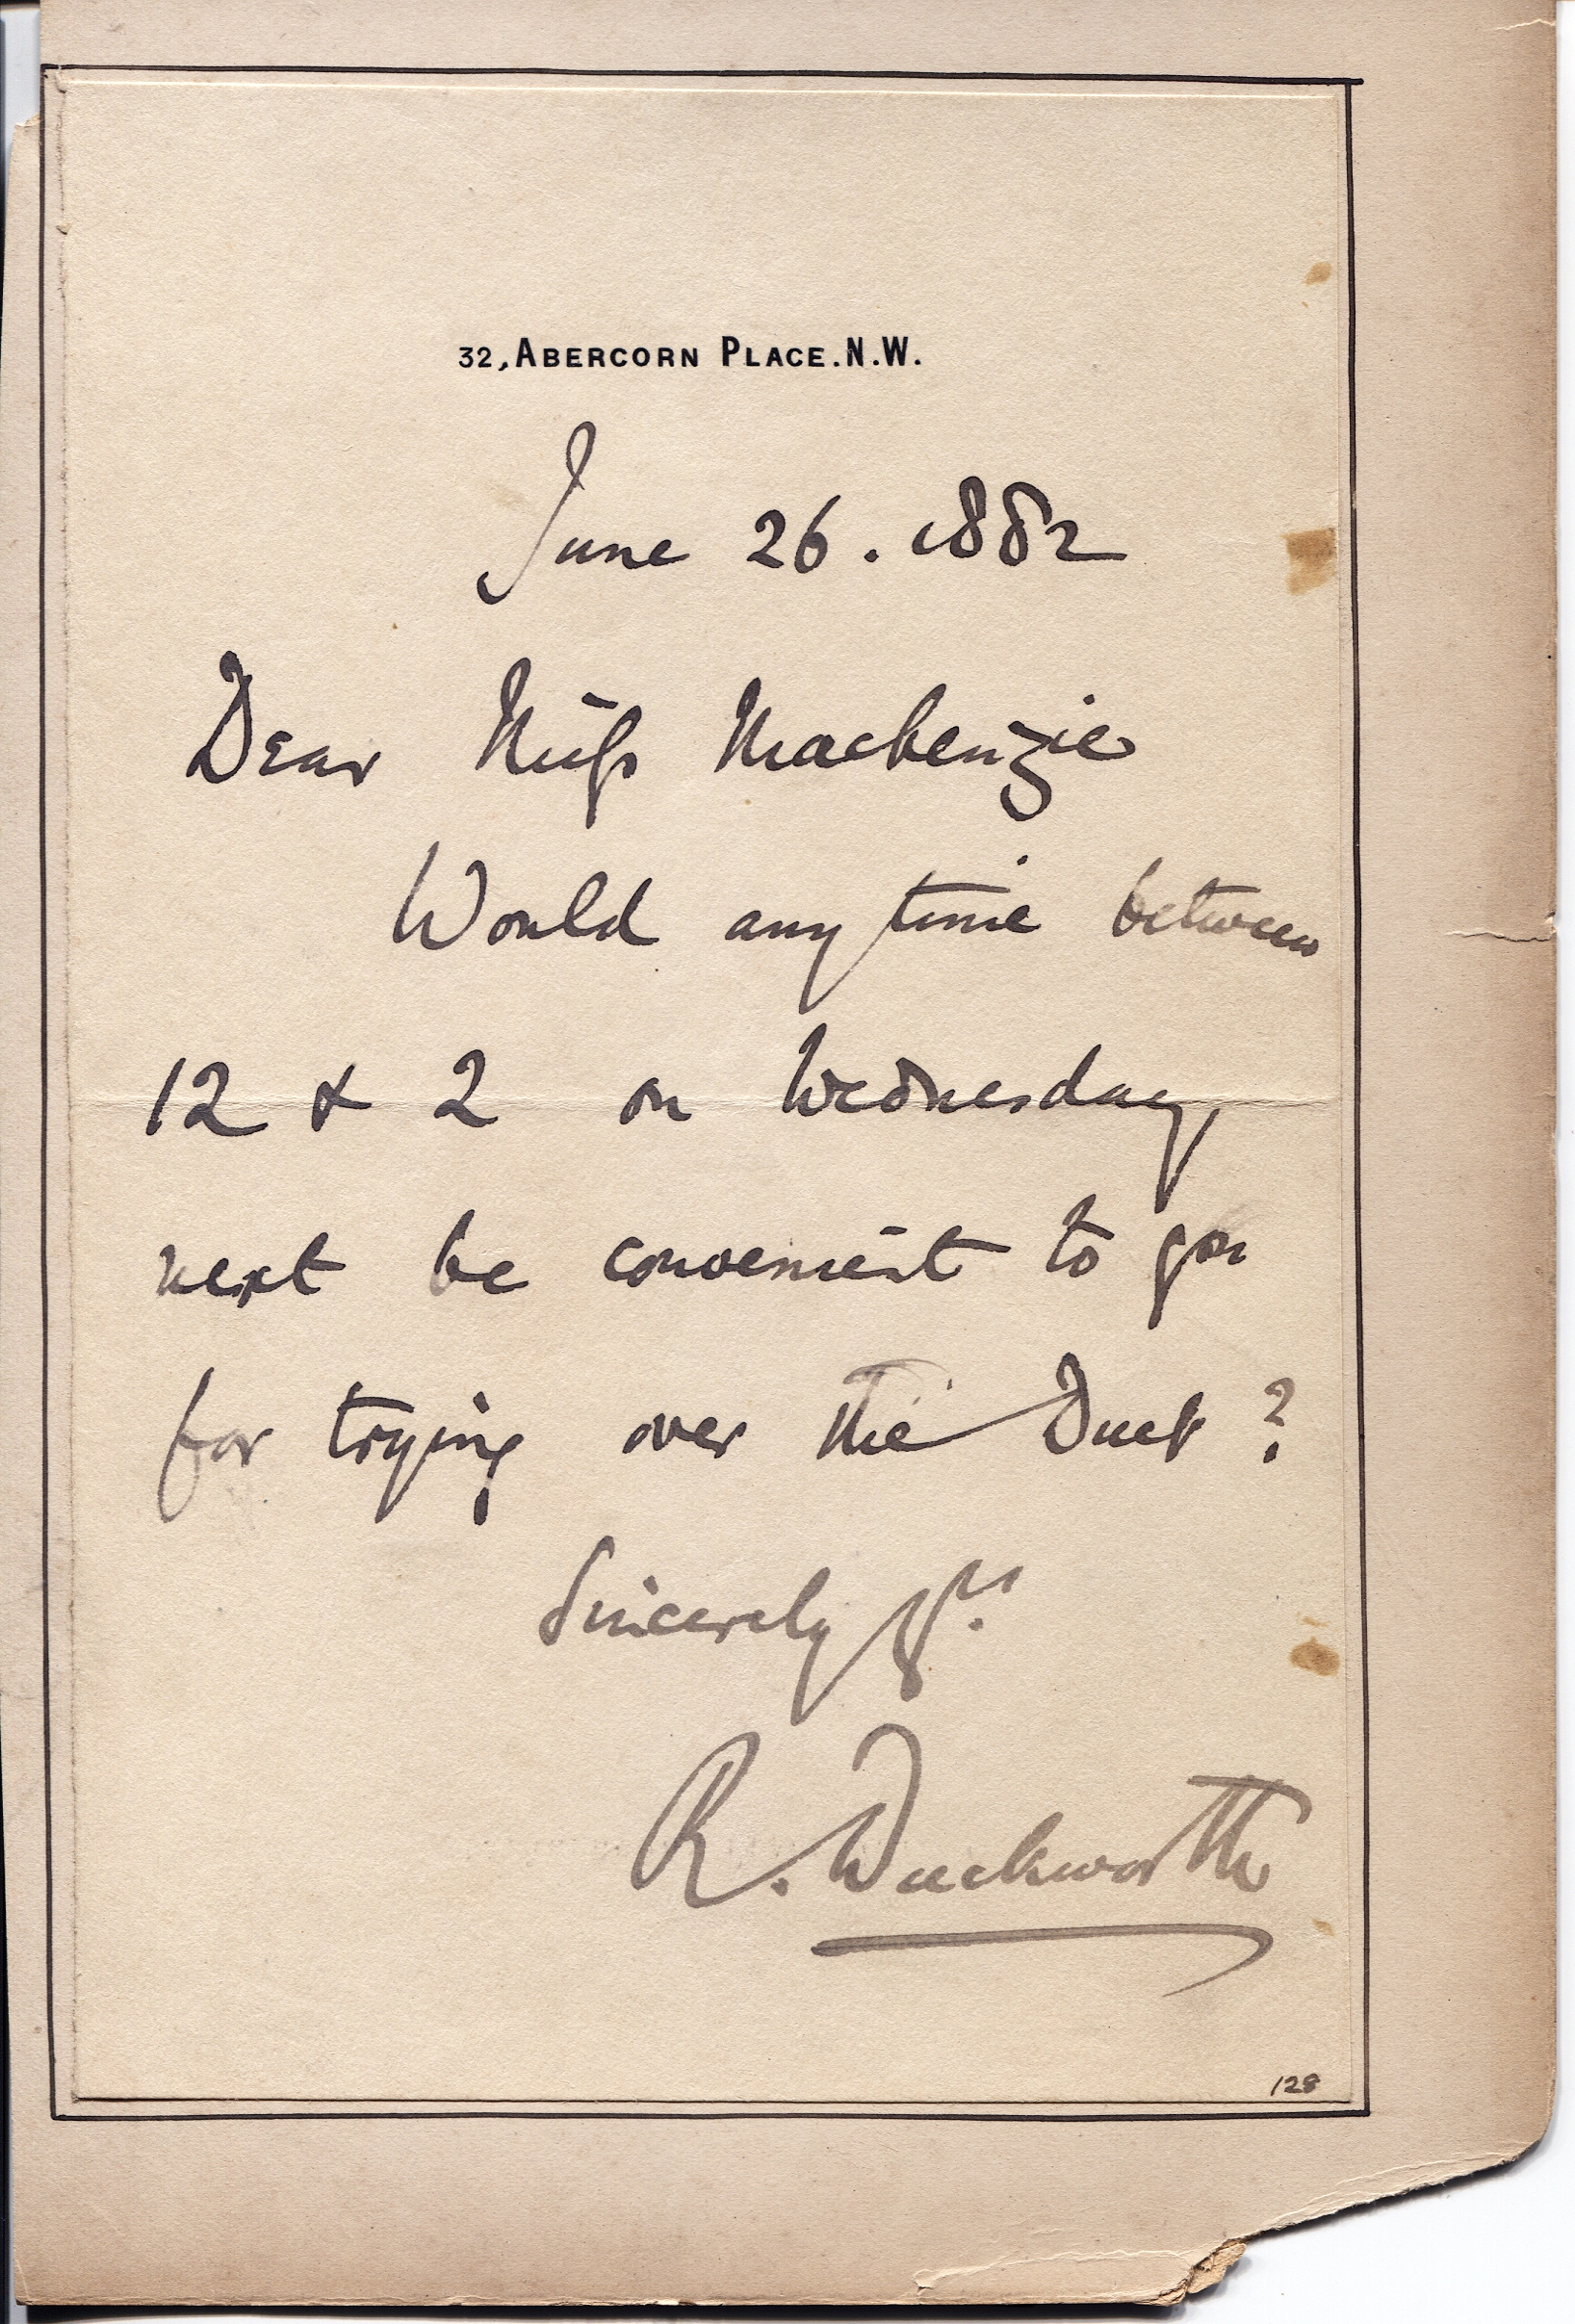 32, ABERCORN PLACE. N.W.
June 26. 1882
Dear Miss Mackenzie
Would any time between
12 & 2 on Wednesday
next be convenient to you
for trying over the Duet ?
Sincerely yrs.
R. Duckworth
128